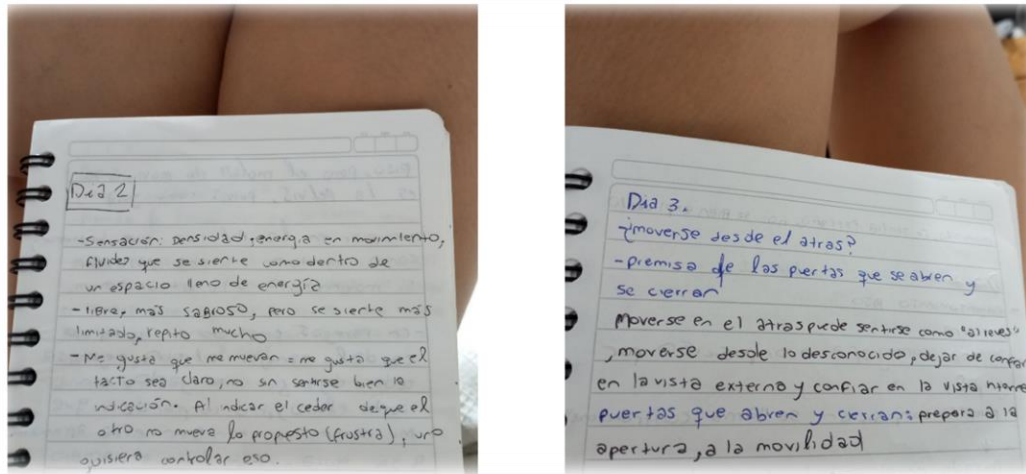 Dia 2
-Sensación: Densidad, energía en movimiento,
fluidez que se siente como dentro de
un espacio lleno de energía
-libre, más SABROSO, pero se siente más
limitado, repito mucho
-Me gusta que me muevan = me gusta que el
tacto sea claro, no sin sentirse bien la
indicación. Al indicar el ceder de que el
otro no mueva lo propesto (frustra), uno
quisiera controlar eso.
Dia 3.
-¿moverse desde el atras?
-premisa de las puertas que se abren y
se cierran
Moverse en el atras puede sentirse como "al reves"
, moverse desde lo desconocido, dejar de confiar
en la vista externa y confiar en la vista interna
puertas que abren y cierran: prepara a la
apertura, a la movilidad